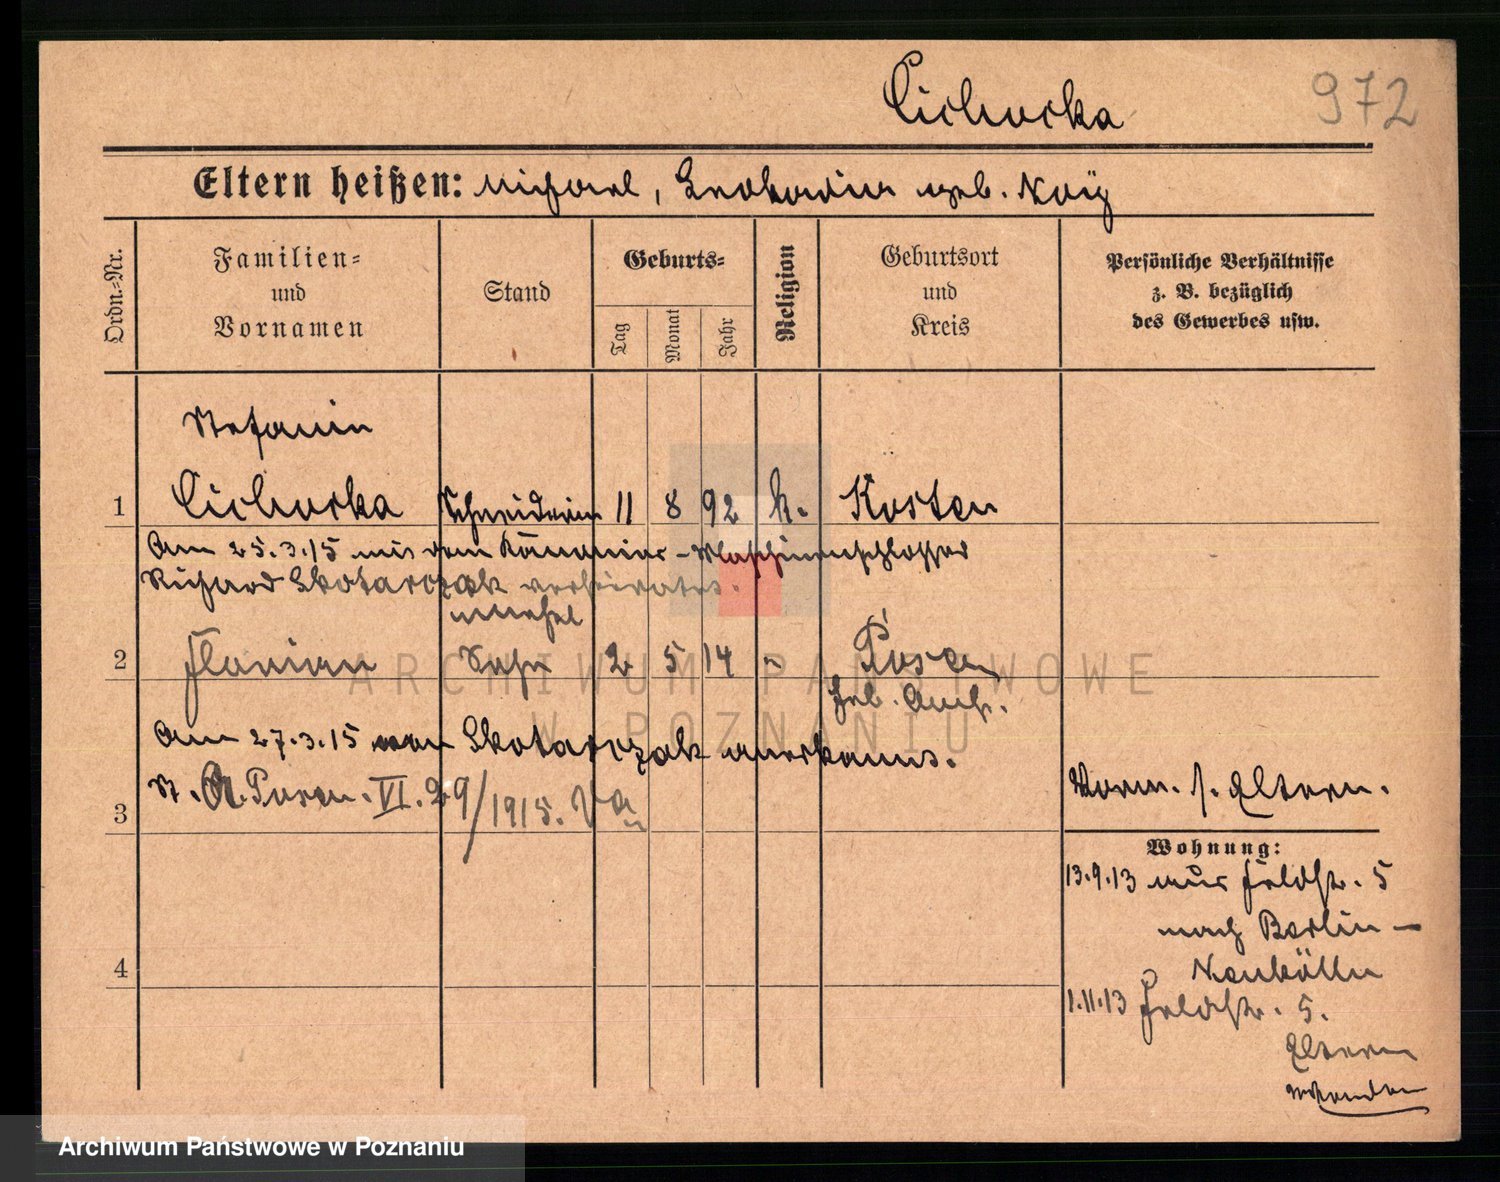 Cichocka
972
Eltern heißen: Michael, Leokadia geb. Noij
Ordn.-Nr.
Familien-
und
Vornamen
Stand
Geburts-
Tag
Monat
Jahr
Religion
Geburtsort
und
Kreis
Persönliche Verhältnisse
z. B. bezüglich
des Gewerbes usw.
Stefania
1 Cichocka Schneiderin 11 8 92 k. Kosten
Am 25.3.15 mit dem Kanonier-Maschinenschlosser
Richard Skotarczak verheiratet.
unehel
2 Florian Sohn 2 5 14 " Posen
Geb. Anst.
Am 27.3.15 von Skotarczak anerkannt.
3 St. A. Posen. VI. 29/1915.
Vorm. s. Eltern.
Wohnung:
13.9.13 aus Feldstr. 5
nach Berlin-
Neukölln
4
1.11.13 Feldstr. 5.
Eltern
ARCHIWUM PAŃSTWOWE
W POZNANIU
Archiwum Państwowe w Poznaniu